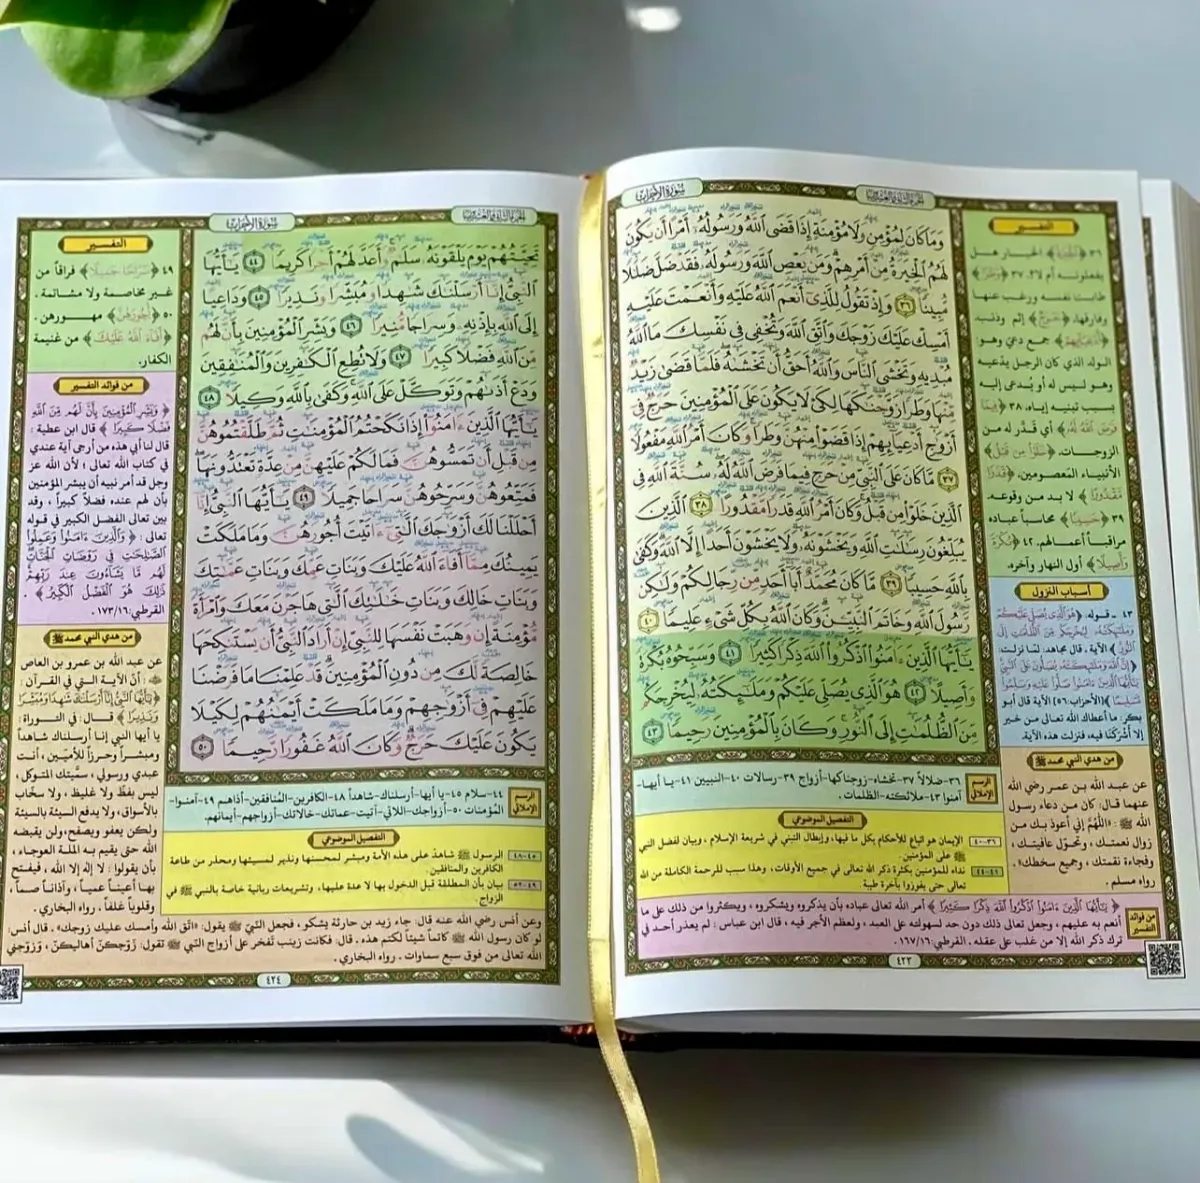 سورة الأحزاب
الجزء الثاني والعشرون
وَمَا كَانَ لِمُؤْمِنٍ وَلَا مُؤْمِنَةٍ إِذَا قَضَى ٱللَّهُ وَرَسُولُهُۥٓ أَمْرًا أَن يَكُونَ
لَهُمُ ٱلْخِيَرَةُ مِنْ أَمْرِهِمْ ۗ وَمَن يَعْصِ ٱللَّهَ وَرَسُولَهُۥ فَقَدْ ضَلَّ ضَلَٰلًا
مُّبِينًا ٣٦ وَإِذْ تَقُولُ لِلَّذِىٓ أَنْعَمَ ٱللَّهُ عَلَيْهِ وَأَنْعَمْتَ عَلَيْهِ
أَمْسِكْ عَلَيْكَ زَوْجَكَ وَٱتَّقِ ٱللَّهَ وَتُخْفِى فِى نَفْسِكَ مَا ٱللَّهُ
مُبْدِيهِ وَتَخْشَى ٱلنَّاسَ وَٱللَّهُ أَحَقُّ أَن تَخْشَىٰهُ ۖ فَلَمَّا قَضَىٰ زَيْدٌ
مِّنْهَا وَطَرًا زَوَّجْنَٰكَهَا لِكَىْ لَا يَكُونَ عَلَى ٱلْمُؤْمِنِينَ حَرَجٌ فِىٓ
أَزْوَٰجِ أَدْعِيَآئِهِمْ إِذَا قَضَوْا۟ مِنْهُنَّ وَطَرًا ۚ وَكَانَ أَمْرُ ٱللَّهِ مَفْعُولًا
٣٧ مَّا كَانَ عَلَى ٱلنَّبِىِّ مِنْ حَرَجٍ فِيمَا فَرَضَ ٱللَّهُ لَهُۥ ۖ سُنَّةَ ٱللَّهِ فِى
ٱلَّذِينَ خَلَوْا۟ مِن قَبْلُ ۚ وَكَانَ أَمْرُ ٱللَّهِ قَدَرًا مَّقْدُورًا ٣٨ ٱلَّذِينَ
يُبَلِّغُونَ رِسَٰلَٰتِ ٱللَّهِ وَيَخْشَوْنَهُۥ وَلَا يَخْشَوْنَ أَحَدًا إِلَّا ٱللَّهَ ۗ وَكَفَىٰ
بِٱللَّهِ حَسِيبًا ٣٩ مَّا كَانَ مُحَمَّدٌ أَبَآ أَحَدٍ مِّن رِّجَالِكُمْ وَلَٰكِن
رَّسُولَ ٱللَّهِ وَخَاتَمَ ٱلنَّبِيِّـۧنَ ۗ وَكَانَ ٱللَّهُ بِكُلِّ شَىْءٍ عَلِيمًا ٤٠
يَٰٓأَيُّهَا ٱلَّذِينَ ءَامَنُوا۟ ٱذْكُرُوا۟ ٱللَّهَ ذِكْرًا كَثِيرًا ٤١ وَسَبِّحُوهُ بُكْرَةً
وَأَصِيلًا ٤٢ هُوَ ٱلَّذِى يُصَلِّى عَلَيْكُمْ وَمَلَٰٓئِكَتُهُۥ لِيُخْرِجَكُم
مِّنَ ٱلظُّلُمَٰتِ إِلَى ٱلنُّورِ ۚ وَكَانَ بِٱلْمُؤْمِنِينَ رَحِيمًا ٤٣
التفسير
٣٦ ﴿الْخِيَرَةُ﴾ الخيار هل
يفعلونه أم لا. ٣٧ ﴿وَطَرًا﴾
طابت نفسه ورغب عنها
وفارقها. ﴿حَرَجٌ﴾ إثم وذنب.
﴿أَدْعِيَائِهِمْ﴾ جمع دعي وهو
الولد الذي كان الرجل يدعيه
وهو ليس له أو يُدعى إليه
بسبب تبنيه إياه. ٣٨ ﴿فِيمَا
فَرَضَ اللَّهُ لَهُ﴾ أي قدّر له من
الزوجات. ﴿خَلَوْا مِن قَبْلُ﴾
الأنبياء المعصومين. ﴿قَدَرًا
مَّقْدُورًا﴾ لا بد من وقوعه.
٣٩ ﴿حَسِيبًا﴾ محاسباً عباده
مراقباً أعمالهم. ٤٢ ﴿بُكْرَةً
وَأَصِيلًا﴾ أول النهار وآخره.
أسباب النزول
٤٣ - قوله: ﴿هُوَ الَّذِي يُصَلِّي عَلَيْكُمْ
وَمَلَائِكَتُهُ لِيُخْرِجَكُم مِّنَ الظُّلُمَاتِ إِلَى
النُّورِ﴾ الآية. قال مجاهد: لما نزلت:
﴿إِنَّ اللَّهَ وَمَلَائِكَتَهُ يُصَلُّونَ عَلَى النَّبِيِّ
يَا أَيُّهَا الَّذِينَ آمَنُوا صَلُّوا عَلَيْهِ وَسَلِّمُوا
تَسْلِيمًا﴾ (الأحزاب: ٥٦) الآية قال أبو
بكر: ما أعطاك الله تعالى من خير
إلا أشركنا فيه، فنزلت هذه الآية.
من هدي النبي محمد ﷺ
عن عبد الله بن عمر رضي الله
عنهما قال: كان من دعاء رسول
الله ﷺ: «اللَّهُمَّ إني أعوذ بك من
زوال نعمتك، وتحوّل عافيتك،
وفجاءة نقمتك، وجميع سخطك».
رواه مسلم.
الرسم الإملائي
٣٦- ضلالاً ٣٧- تخشاه- زوجناكها- أزواج ٣٩- رسالات ٤٠- النبيين ٤١- يا أيها-
آمنوا ٤٣- ملائكته- الظلمات.
التفصيل الموضوعي
٣٦-٤٠ الإيمان هو اتباع للأحكام بكل ما فيها، وإبطال التبني في شريعة الإسلام، وبيان لفضل النبي
ﷺ على المؤمنين.
٤١-٤٤ نداء للمؤمنين بكثرة ذكر الله تعالى في جميع الأوقات، وهذا سبب للرحمة الكاملة من الله
تعالى حتى يفوزوا بآخرة طيبة.
من فوائد التفسير
﴿يَا أَيُّهَا الَّذِينَ آمَنُوا اذْكُرُوا اللَّهَ ذِكْرًا كَثِيرًا﴾ أمر الله تعالى عباده بأن يذكروه ويشكروه، ويكثروا من ذلك على ما
أنعم به عليهم، وجعل تعالى ذلك دون حد لسهولته على العبد، ولعظم الأجر فيه، قال ابن عباس: لم يعذر أحد في
ترك ذكر الله إلا من غلب على عقله. القرطبي: ١٦٧/١٦.
٤٢٣
الجزء الثاني والعشرون
سورة الأحزاب
تَحِيَّتُهُمْ يَوْمَ يَلْقَوْنَهُۥ سَلَٰمٌ ۚ وَأَعَدَّ لَهُمْ أَجْرًا كَرِيمًا ٤٤ يَٰٓأَيُّهَا
ٱلنَّبِىُّ إِنَّآ أَرْسَلْنَٰكَ شَٰهِدًا وَمُبَشِّرًا وَنَذِيرًا ٤٥ وَدَاعِيًا
إِلَى ٱللَّهِ بِإِذْنِهِۦ وَسِرَاجًا مُّنِيرًا ٤٦ وَبَشِّرِ ٱلْمُؤْمِنِينَ بِأَنَّ لَهُم
مِّنَ ٱللَّهِ فَضْلًا كَبِيرًا ٤٧ وَلَا تُطِعِ ٱلْكَٰفِرِينَ وَٱلْمُنَٰفِقِينَ
وَدَعْ أَذَىٰهُمْ وَتَوَكَّلْ عَلَى ٱللَّهِ ۚ وَكَفَىٰ بِٱللَّهِ وَكِيلًا ٤٨
يَٰٓأَيُّهَا ٱلَّذِينَ ءَامَنُوٓا۟ إِذَا نَكَحْتُمُ ٱلْمُؤْمِنَٰتِ ثُمَّ طَلَّقْتُمُوهُنَّ
مِن قَبْلِ أَن تَمَسُّوهُنَّ فَمَا لَكُمْ عَلَيْهِنَّ مِنْ عِدَّةٍ تَعْتَدُّونَهَا ۖ
فَمَتِّعُوهُنَّ وَسَرِّحُوهُنَّ سَرَاحًا جَمِيلًا ٤٩ يَٰٓأَيُّهَا ٱلنَّبِىُّ إِنَّآ
أَحْلَلْنَا لَكَ أَزْوَٰجَكَ ٱلَّٰتِىٓ ءَاتَيْتَ أُجُورَهُنَّ وَمَا مَلَكَتْ
يَمِينُكَ مِمَّآ أَفَآءَ ٱللَّهُ عَلَيْكَ وَبَنَاتِ عَمِّكَ وَبَنَاتِ عَمَّٰتِكَ
وَبَنَاتِ خَالِكَ وَبَنَاتِ خَٰلَٰتِكَ ٱلَّٰتِى هَاجَرْنَ مَعَكَ وَٱمْرَأَةً
مُّؤْمِنَةً إِن وَهَبَتْ نَفْسَهَا لِلنَّبِىِّ إِنْ أَرَادَ ٱلنَّبِىُّ أَن يَسْتَنكِحَهَا
خَالِصَةً لَّكَ مِن دُونِ ٱلْمُؤْمِنِينَ ۗ قَدْ عَلِمْنَا مَا فَرَضْنَا
عَلَيْهِمْ فِىٓ أَزْوَٰجِهِمْ وَمَا مَلَكَتْ أَيْمَٰنُهُمْ لِكَيْلَا
يَكُونَ عَلَيْكَ حَرَجٌ ۗ وَكَانَ ٱللَّهُ غَفُورًا رَّحِيمًا ٥٠
التفسير
٤٩ ﴿سَرَاحًا جَمِيلًا﴾ فراقاً من
غير مخاصمة ولا مشاتمة.
٥٠ ﴿أُجُورَهُنَّ﴾ مهورهن.
﴿أَفَاءَ اللَّهُ عَلَيْكَ﴾ من غنيمة
الكفار.
من فوائد التفسير
﴿وَبَشِّرِ الْمُؤْمِنِينَ بِأَنَّ لَهُم مِّنَ اللَّهِ
فَضْلًا كَبِيرًا﴾ قال ابن عطية:
قال لنا أبي هذه من أرجى آية عندي
في كتاب الله تعالى؛ لأن الله عز
وجل قد أمر نبيه أن يبشر المؤمنين
بأن لهم عنده فضلاً كبيراً، وقد
بين تعالى الفضل الكبير في قوله
تعالى: ﴿وَالَّذِينَ آمَنُوا وَعَمِلُوا
الصَّالِحَاتِ فِي رَوْضَاتِ الْجَنَّاتِ
لَهُم مَّا يَشَاءُونَ عِندَ رَبِّهِمْ
ذَٰلِكَ هُوَ الْفَضْلُ الْكَبِيرُ﴾.
القرطبي: ١٧٣/١٦.
من هدي النبي محمد ﷺ
عن عبد الله بن عمرو بن العاص
: أنّ الآية التي في القرآن
﴿يَا أَيُّهَا النَّبِيُّ إِنَّا أَرْسَلْنَاكَ شَاهِدًا وَمُبَشِّرًا
وَنَذِيرًا﴾ قال: في التوراة:
يا أيها النبي إنا أرسلناك شاهداً
ومبشراً وحرزاً للأميّين، أنت
عبدي ورسولي، سمّيتك المتوكل،
ليس بفظّ ولا غليظ، ولا سخّاب
بالأسواق، ولا يدفع السيئة بالسيئة
ولكن يعفو ويصفح، ولن يقبضه
الله حتى يقيم به الملة العوجاء،
بأن يقولوا: لا إله إلا الله، فيفتح
بها أعيناً عمياً، وآذاناً صماً،
وقلوباً غلفاً. رواه البخاري.
الرسم الإملائي
٤٤- سلام ٤٥- يا أيها- أرسلناك- شاهداً ٤٨- الكافرين- المنافقين- أذاهم ٤٩- آمنوا-
المؤمنات ٥٠- أزواجك- اللاتي- آتيت- عماتك- خالاتك- أزواجهم- أيمانهم.
التفصيل الموضوعي
٤٥-٤٨ الرسول ﷺ شاهدٌ على هذه الأمة ومبشر لمحسنها ونذير لمسيئها ومحذر من طاعة
الكافرين والمنافقين.
٤٩-٥٢ بيان بأن المطلقة قبل الدخول بها لا عدة عليها، وتشريعات ربانية خاصة بالنبي ﷺ في
الزواج.
وعن أنس رضي الله عنه قال: جاء زيد بن حارثة يشكو، فجعل النَّبيّ ﷺ يقول: «اتّق الله وأمسك عليك زوجك». قال أنس
لو كان رسول الله ﷺ كاتماً شيئاً لكتم هذه. قال: فكانت زينب تَفخر على أزواج النَّبي ﷺ تقول: زَوَّجكنّ أهاليكنّ، وَزَوّجني
الله تعالى من فوق سبع سماوات. رواه البخاري.
٤٢٤